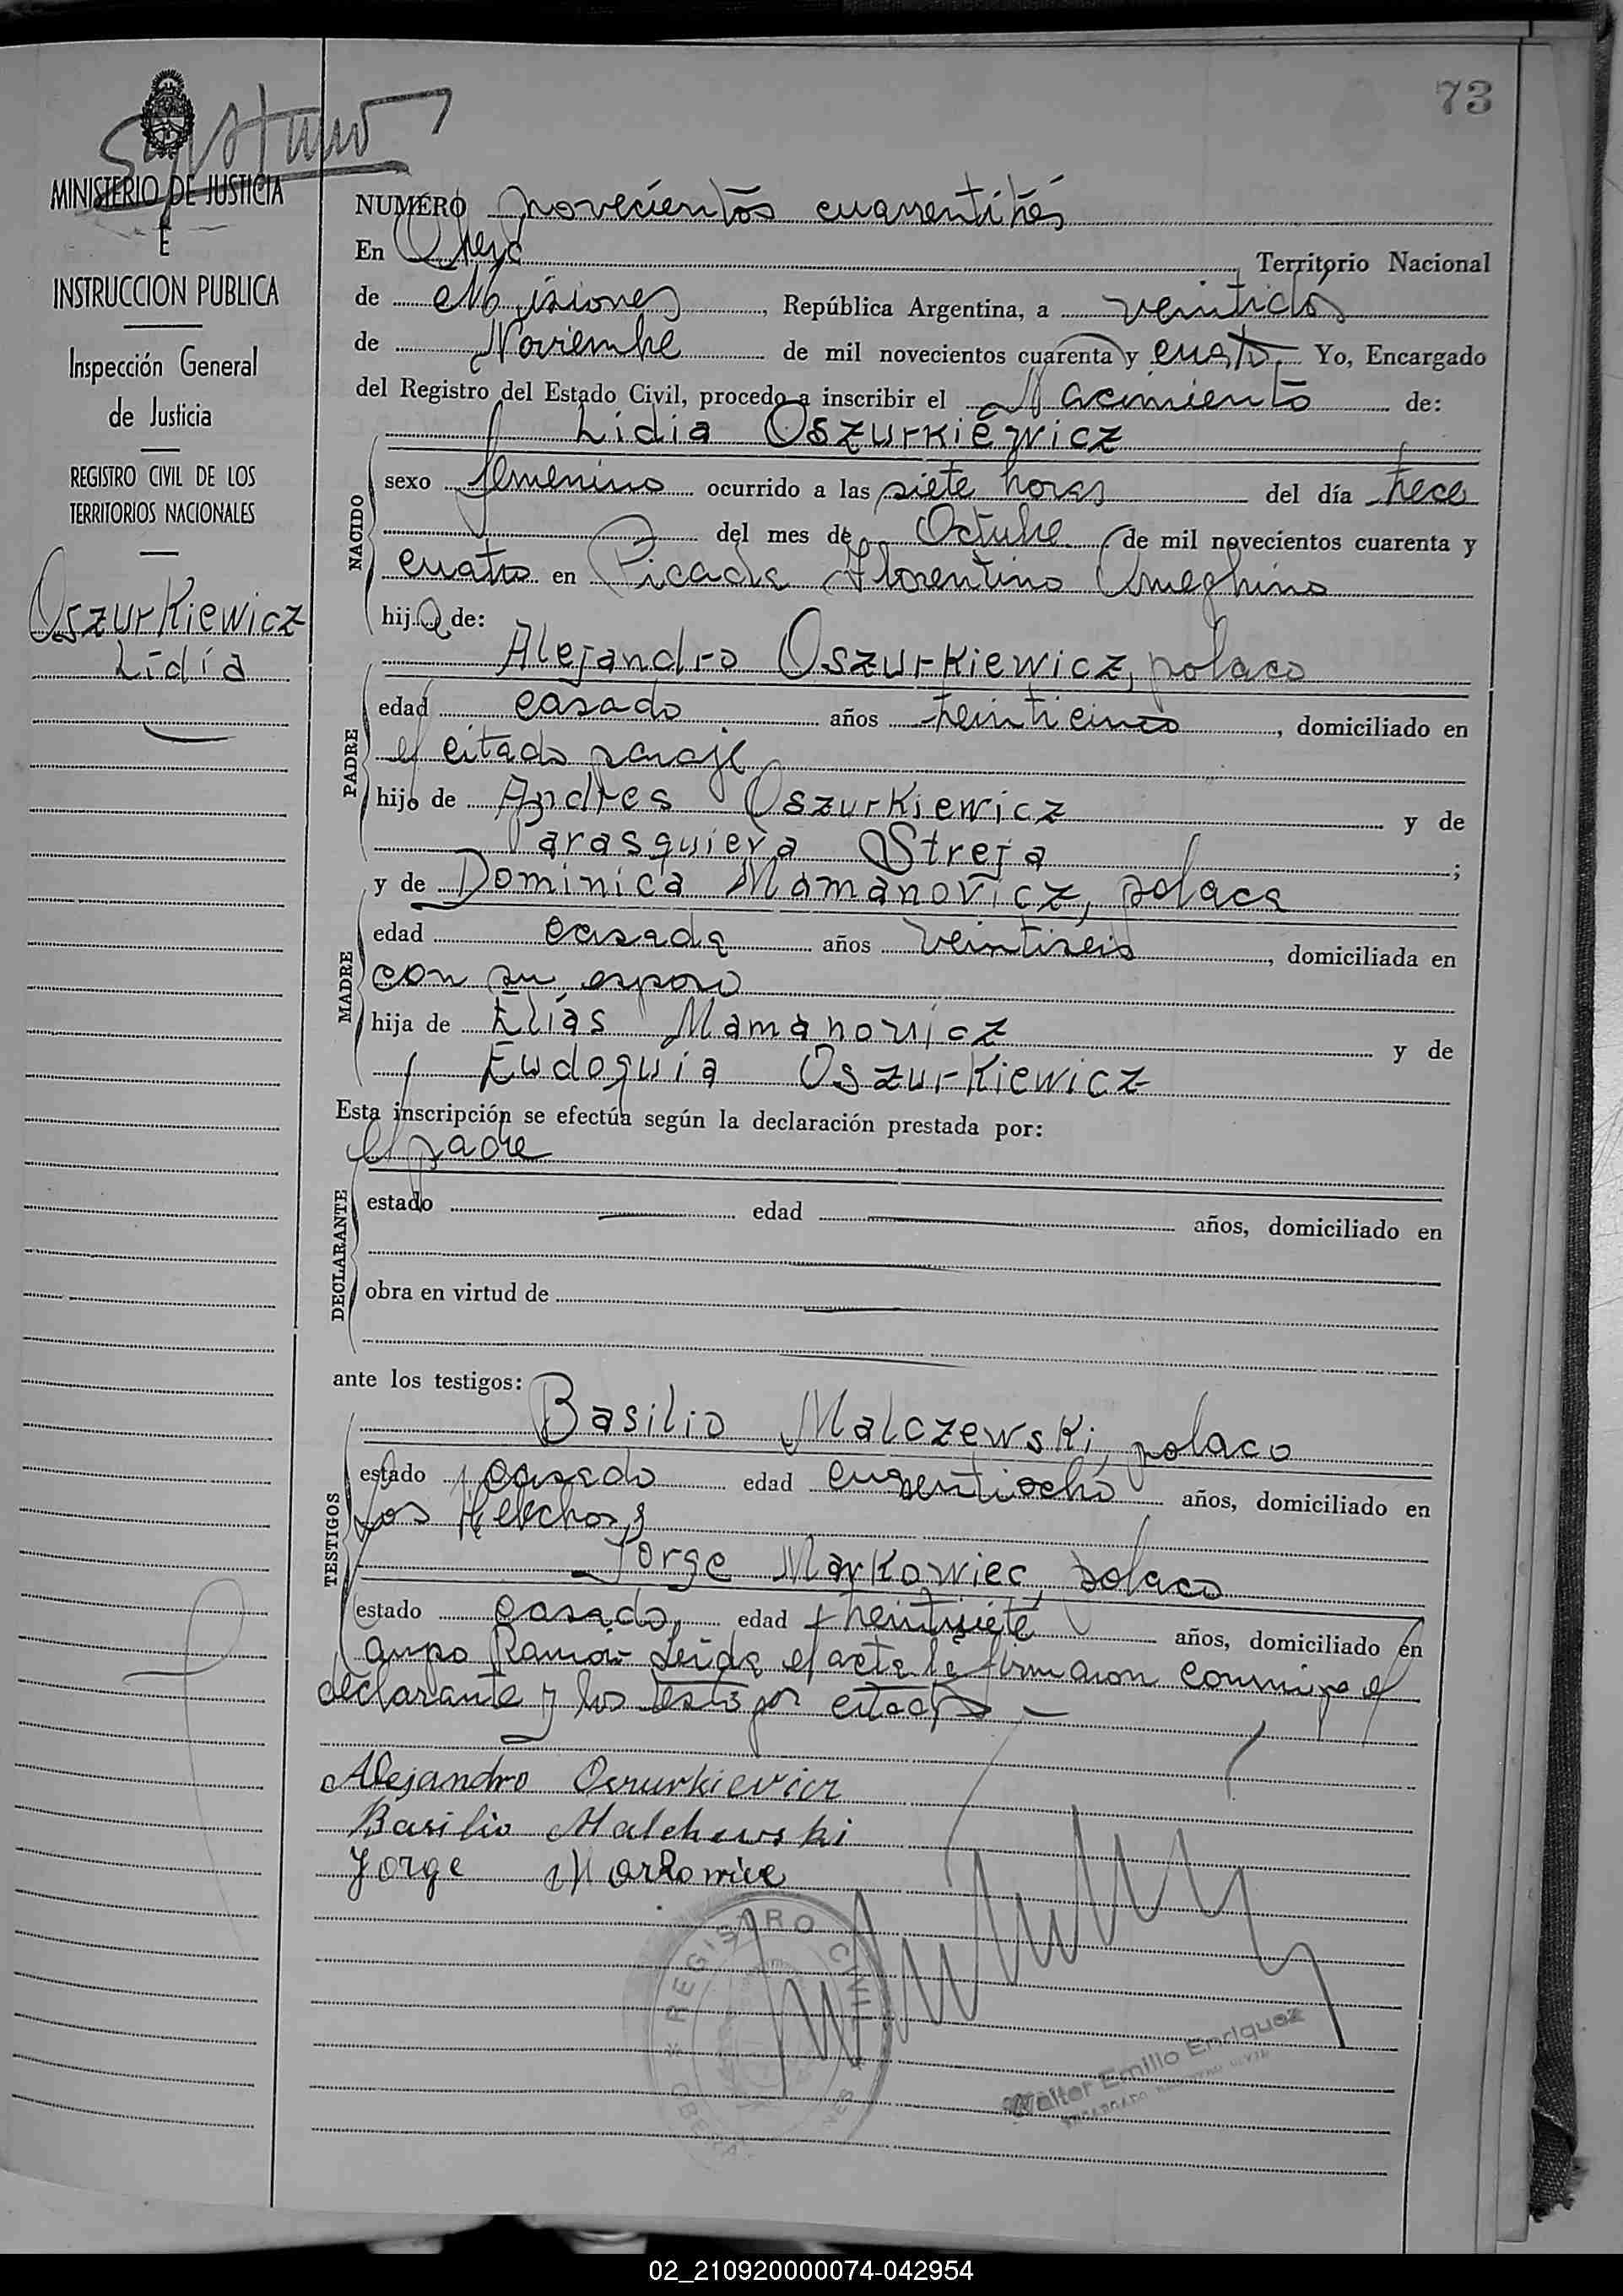 73
MINISTERIO DE JUSTICIA
E
INSTRUCCION PUBLICA
Inspección General
de Justicia
REGISTRO CIVIL DE LOS
TERRITORIOS NACIONALES
Oszurkiewicz
Lidia
NUMERO novecientos cuarentitrés
En Oberá Territorio Nacional
de Misiones, República Argentina, a veintidos
de Noviembre de mil novecientos cuarenta y cuatro. Yo, Encargado
del Registro del Estado Civil, procedo a inscribir el Nacimiento de:
Lidia Oszurkiewicz
NACIDO
sexo femenino ocurrido a las siete horas del día trece
del mes de Octubre de mil novecientos cuarenta y
cuatro en Picada Florentino Ameghino
hija de:
Alejandro Oszurkiewicz, polaco
PADRE
edad casado años treinticinco, domiciliado en
el citado paraje
hijo de Andres Oszurkiewicz y de
Parasquieva Streja;
y de Dominica Mamanovicz, polaca
MADRE
edad casada años veintiseis, domiciliada en
con su esposo
hija de Elias Mamanovicz y de
Eudoquia Oszurkiewicz
Esta inscripción se efectúa según la declaración prestada por:
el padre
DECLARANTE
estado edad años, domiciliado en
obra en virtud de
ante los testigos:
Basilio Malczewski, polaco
TESTIGOS
estado casado edad cuarentiocho años, domiciliado en
Los Helechos y
Jorge Markowiec, polaco
estado casado, edad treintisiete años, domiciliado en
Campo Ramón- Leida el acta la firmaron conmigo el
declarante y los testigos citados
Alejandro Oszurkievicz
Basilio Malchewski
Jorge Markowiec
REGISTRO CIVIL
Walter Emilio Enriquez
ENCARGADO REGISTRO CIVIL
02_210920000074-042954